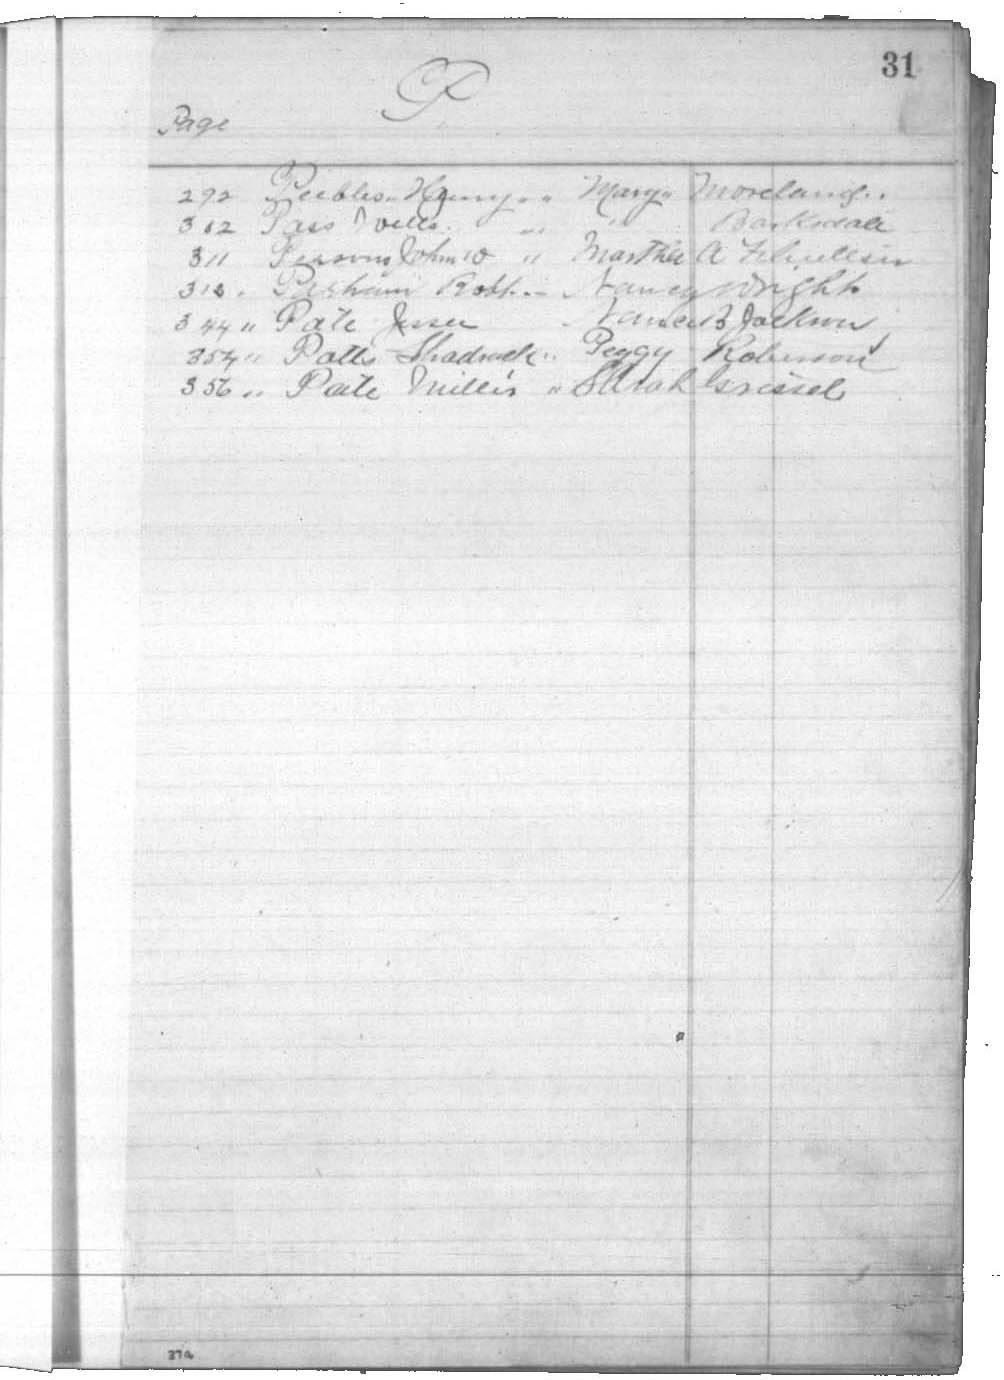 31
P
Page
292 Peebles „ Henry „ „ Mary „ Moreland „
302 Pass „ „ Barksdale
311 Persons John W „ Martha A
318 „ Perham Robt. „ Nancy Wright
344 „ Pate Jesse Jackson
354 „ Potts Shadrack „ Peggy Robinson
356 „ Pate Millis „ Sarah Grissel
372